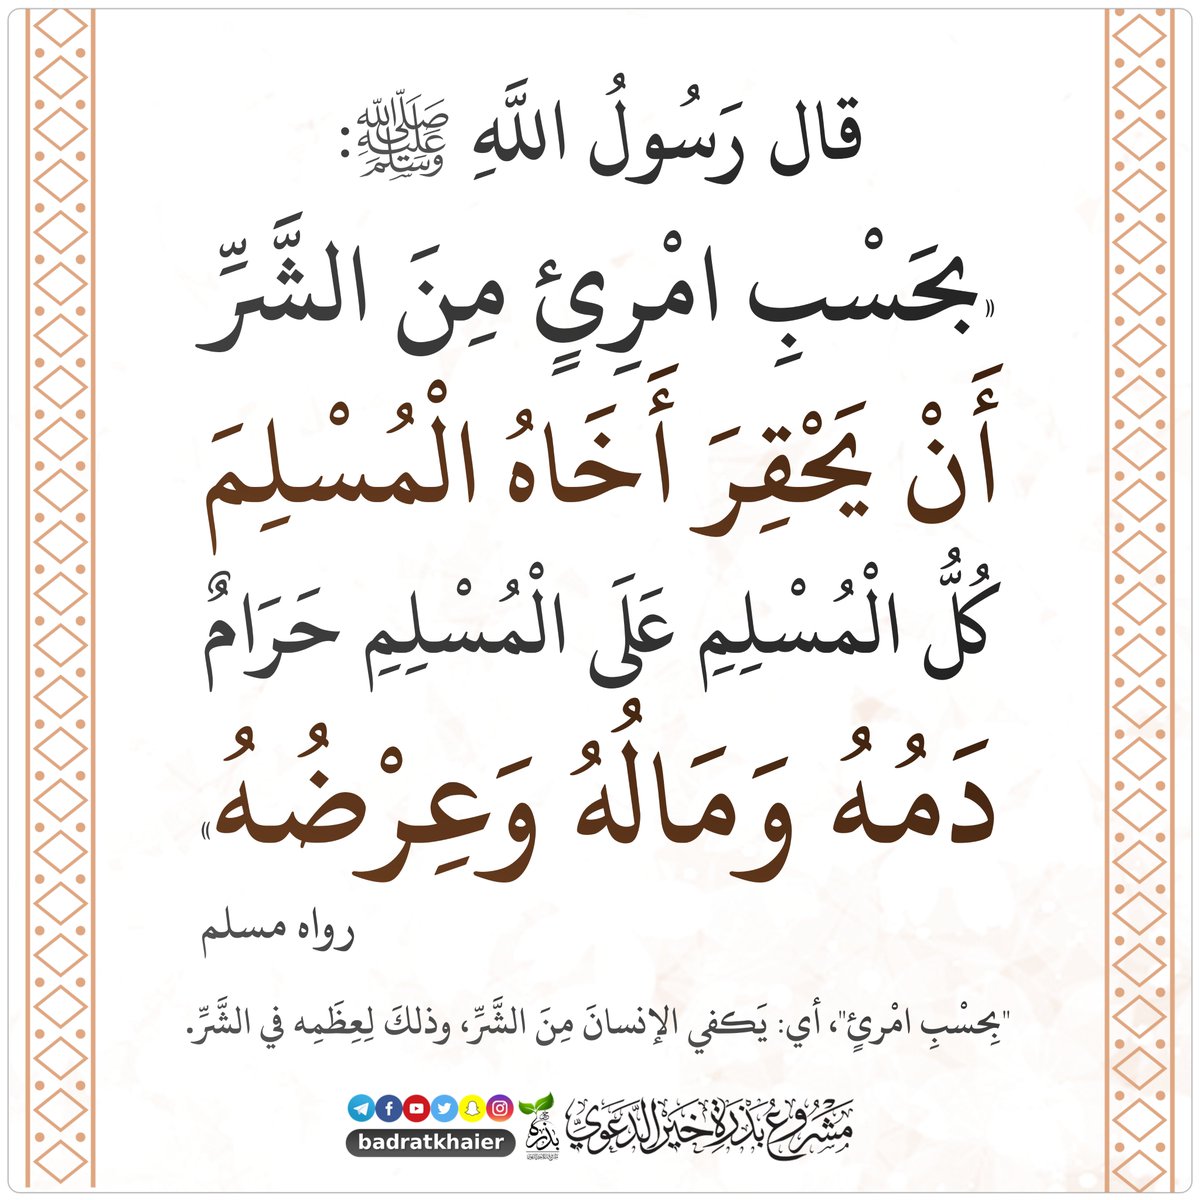 قال رَسُولُ اللَّهِ ﷺ:
«بِحَسْبِ امْرِئٍ مِنَ الشَّرِّ
أَنْ يَحْقِرَ أَخَاهُ الْمُسْلِمَ
كُلُّ الْمُسْلِمِ عَلَى الْمُسْلِمِ حَرَامٌ
دَمُهُ وَمَالُهُ وَعِرْضُهُ»
رواه مسلم
"بِحسْبِ امْرئٍ"، أي: يَكفي الإنسانَ مِنَ الشَّرِّ، وذلكَ لِعِظَمِه في الشَّرِّ.
مَشْرُوعُ بَذْرَةِ خَيْرٍ الدَّعَوِيِّ
بذرة
badratkhaier